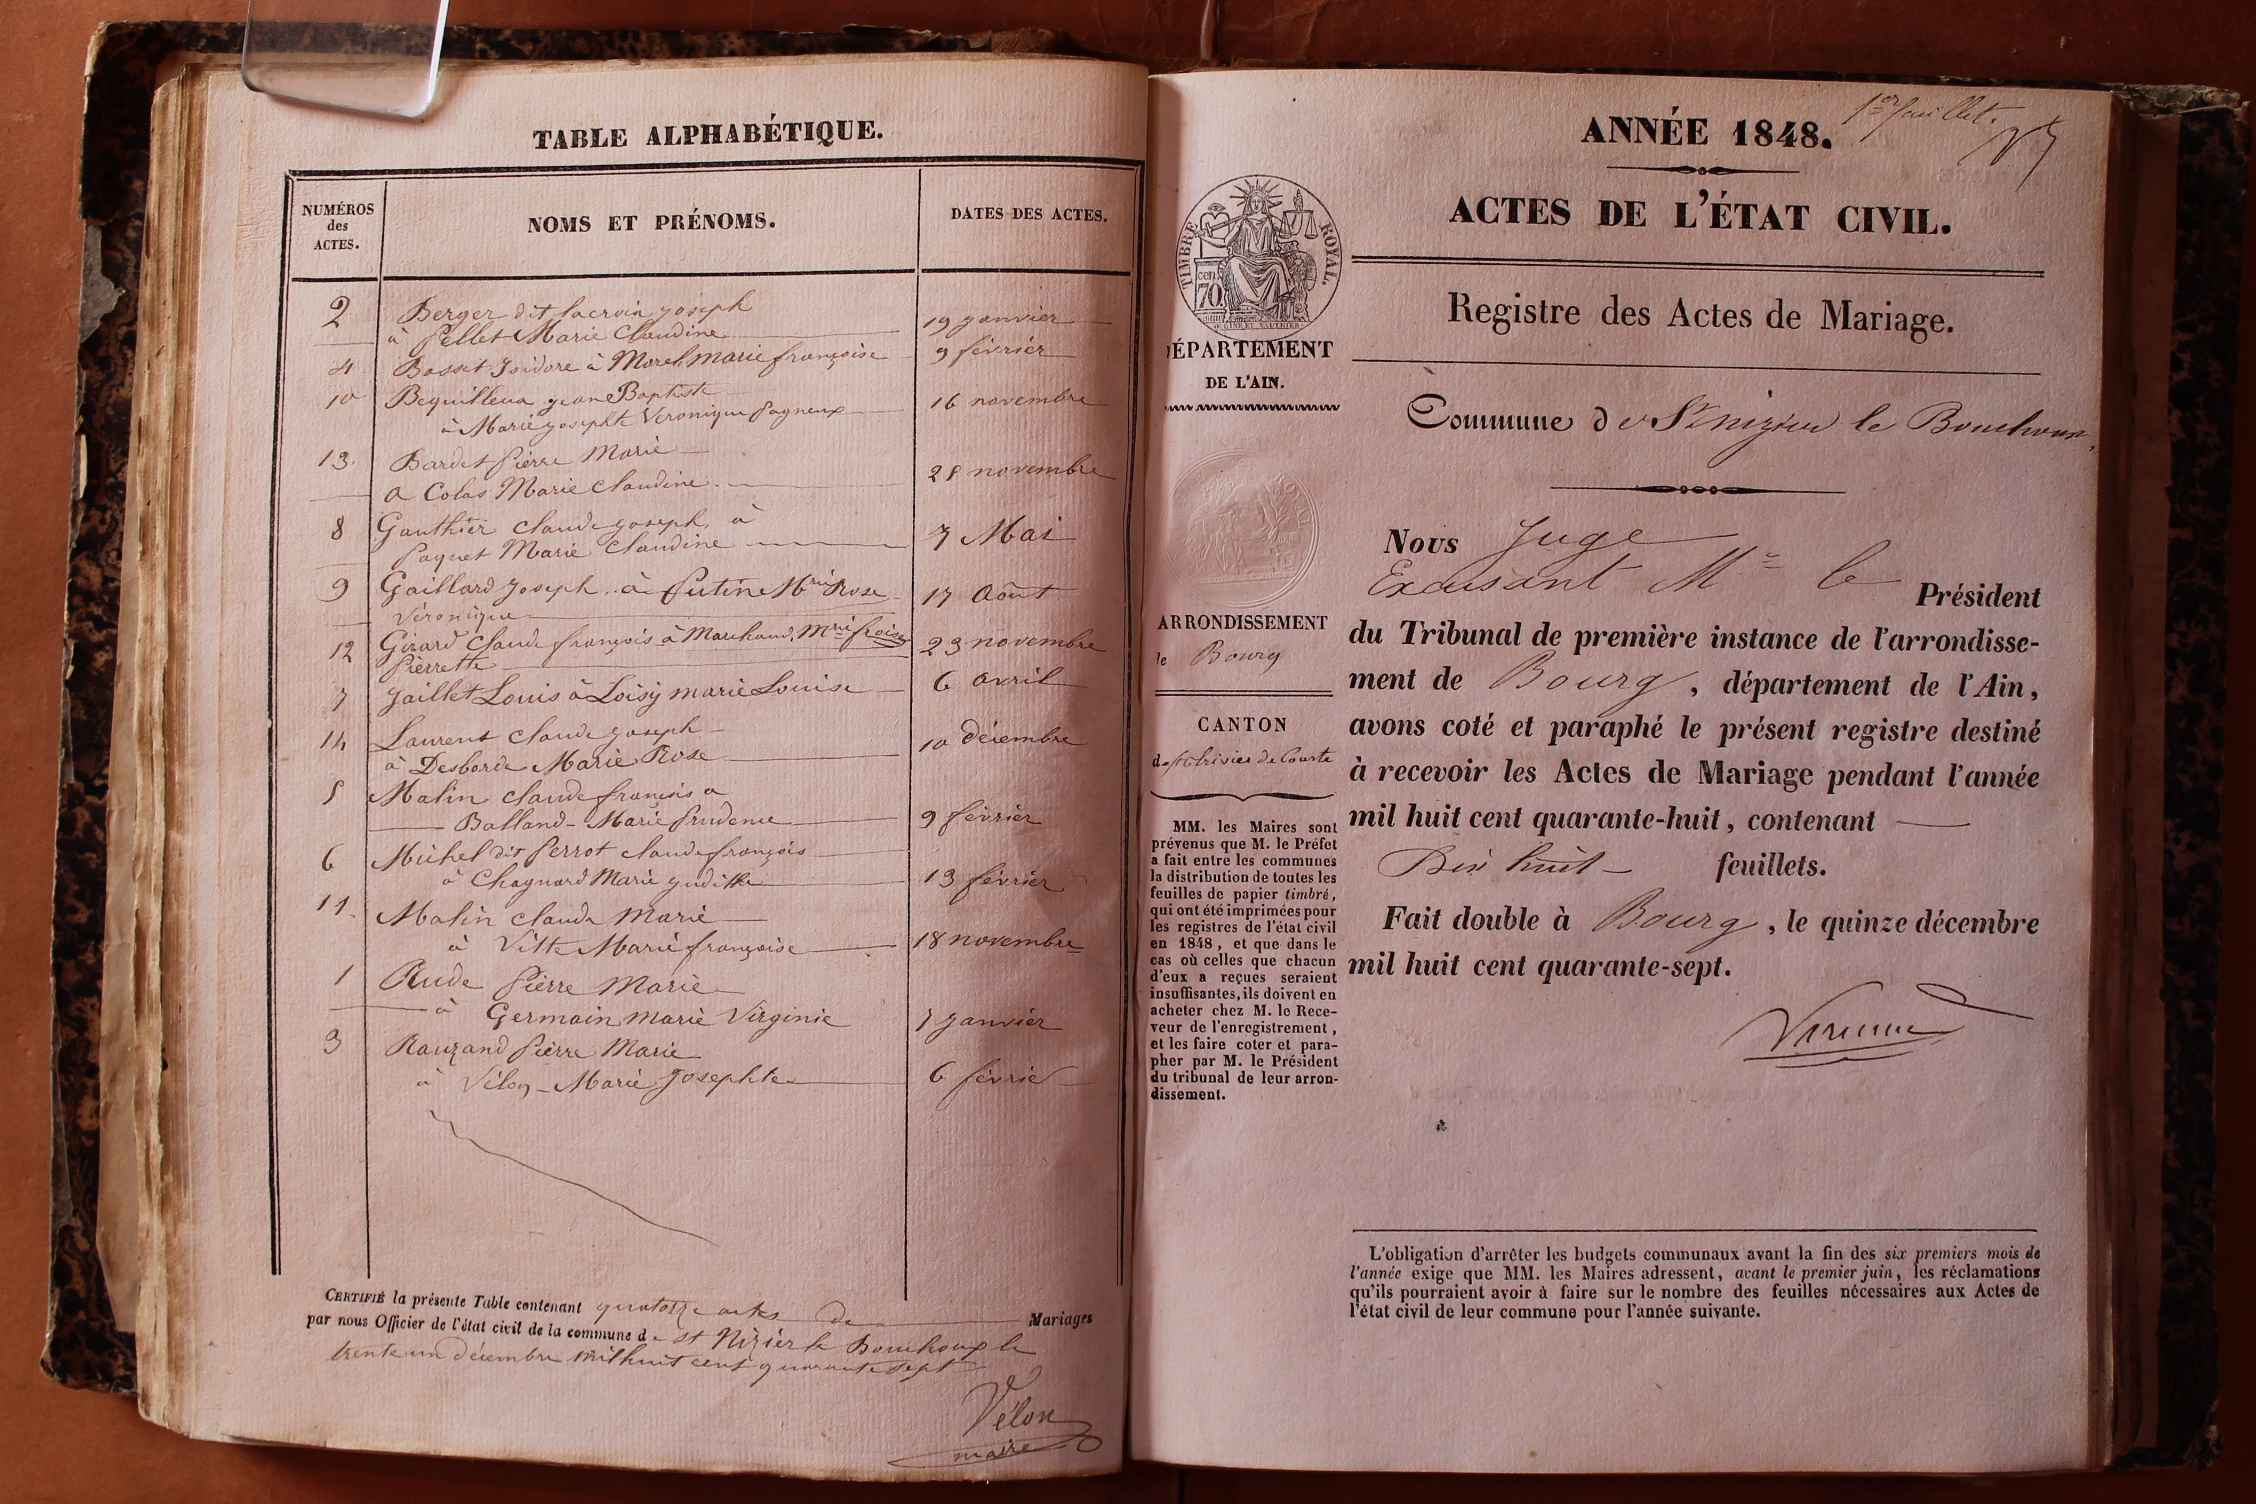 TABLE ALPHABÉTIQUE.
NUMÉROS
des
ACTES.
NOMS ET PRÉNOMS.
DATES DES ACTES.
2 Berger dit lacroix joseph
à Pellet Marie Claudine 19 janvier
4 Basset Isidore à Morel marie françoise 9 février
10 Bequilleux jean Baptiste 16 novembre
à Marie josephte Veronique Pagneux
13. Bardet Pierre Marie
a Colas Marie Claudine 28 novembre
8 Gauthier claude joseph à
Paquet Marie Claudine 7 Mai
9 Gaillard Joseph à Putin Mrie Rose 17 Août
Véronique
12 Girard Claude françois à Marchand Mrie froise 23 novembre
Pierrette
7 Jaillet Louis à Loisy marie Louise 6 avril
14 Laurent claude joseph
à Desborde Marie Rose 10 décembre
5 Malin claude françois a
Balland Marie Prudence 9 février
6 Michel dit Perrot claude françois
à Chagnard Marie judithe 13 février
11. Malin claude Marie
à Vitte Marie françoise 18 novembre
1 Rude Pierre Marie
à Germain marie Virginie 7 janvier
3 Rauzand Pierre Marie
à Vélon Marie Josephte 6 février
CERTIFIÉ la présente Table contenant quatorze actes de Mariages
par nous Officier de l'état civil de la commune de st Nizier le Bouchoux le
trente un décembre mil huit cent quarante sept
Vélon
maire
1er feuillet.
ANNÉE 1848.
ACTES DE L'ÉTAT CIVIL.
Registre des Actes de Mariage.
TIMBRE ROYAL.
70 cen
DÉPARTEMENT
DE L'AIN.
Commune de St nizier le Bouchoux.
ARRONDISSEMENT
de Bourg
CANTON
de St trivier de Courte
MM. les Maires sont
prévenus que M. le Préfet
a fait entre les communes
la distribution de toutes les
feuilles de papier timbré,
qui ont été imprimées pour
les registres de l'état civil
en 1848, et que dans le
cas où celles que chacun
d'eux a reçues seraient
insuffisantes, ils doivent en
acheter chez M. le Rece-
veur de l'enregistrement,
et les faire coter et para-
pher par M. le Président
du tribunal de leur arron-
dissement.
Nous Juge
Excusant Mr le Président
du Tribunal de première instance de l'arrondisse-
ment de Bourg, département de l'Ain,
avons coté et paraphé le présent registre destiné
à recevoir les Actes de Mariage pendant l'année
mil huit cent quarante-huit, contenant
Dix huit feuillets.
Fait double à Bourg, le quinze décembre
mil huit cent quarante-sept.
L'obligation d'arrêter les budgets communaux avant la fin des six premiers mois de
l'année exige que MM. les Maires adressent, avant le premier juin, les réclamations
qu'ils pourraient avoir à faire sur le nombre des feuilles nécessaires aux Actes de
l'état civil de leur commune pour l'année suivante.